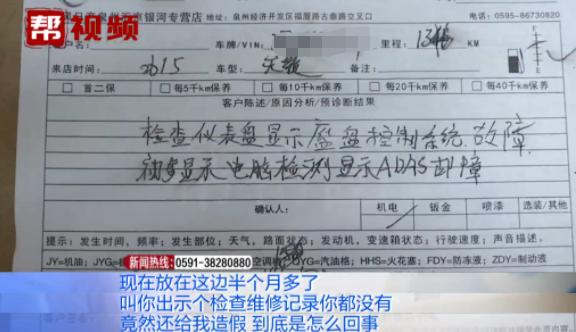 帮视频
泉州经济开发区福厦路古泰路交叉口 电话：0595-86730820
车牌/VIN： 里程： KM
来店时间： 车型： 天籁 备注：
首二保 每5千km保养 每10千km保养 每20千km保养 每40千km保养
客户陈述/原因分析/预诊断结果
检查仪表盘显示底盘控制系统故障
电脑检测显示ADAS故障
确认人： 机电 钣金 喷漆 选装/其他
提示：发生时间，频率；发生部位；天气，路面状态；发动机，变速箱状态；行驶速度；声音描述。
JY=机油；JYG= GYG=汽油格；HHS=火花塞；FDY=防冻液；ZDY=制动液
新闻热线：0591-38280880
现在放在这边半个月多了
叫你出示个检查维修记录你都没有
竟然还给我造假 到底是怎么回事